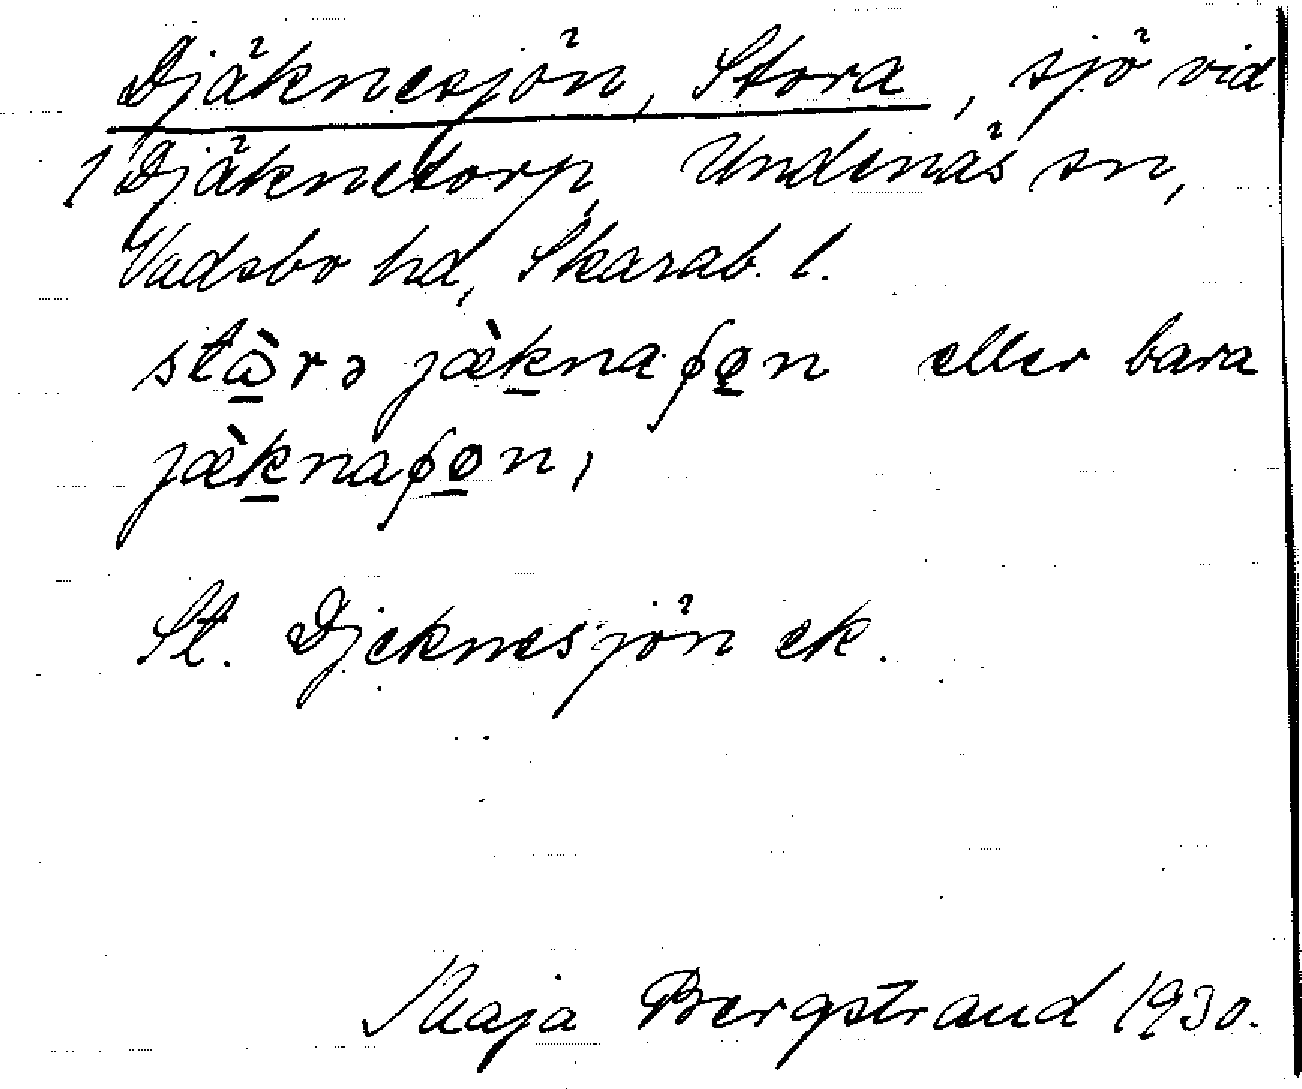 Djäknesjön, Stora, sjö vid
1 Djäknetorp, Undenäs sn,
Vadsbo hd, Skarab. l.
stɷ̀rə jæ̀knaʃɷn eller bara
jæ̀knaʃɷn,
St. Djeknesjön ek.
Maja Bergstrand 1930.